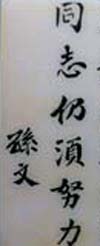 同志仍須努力
孫文